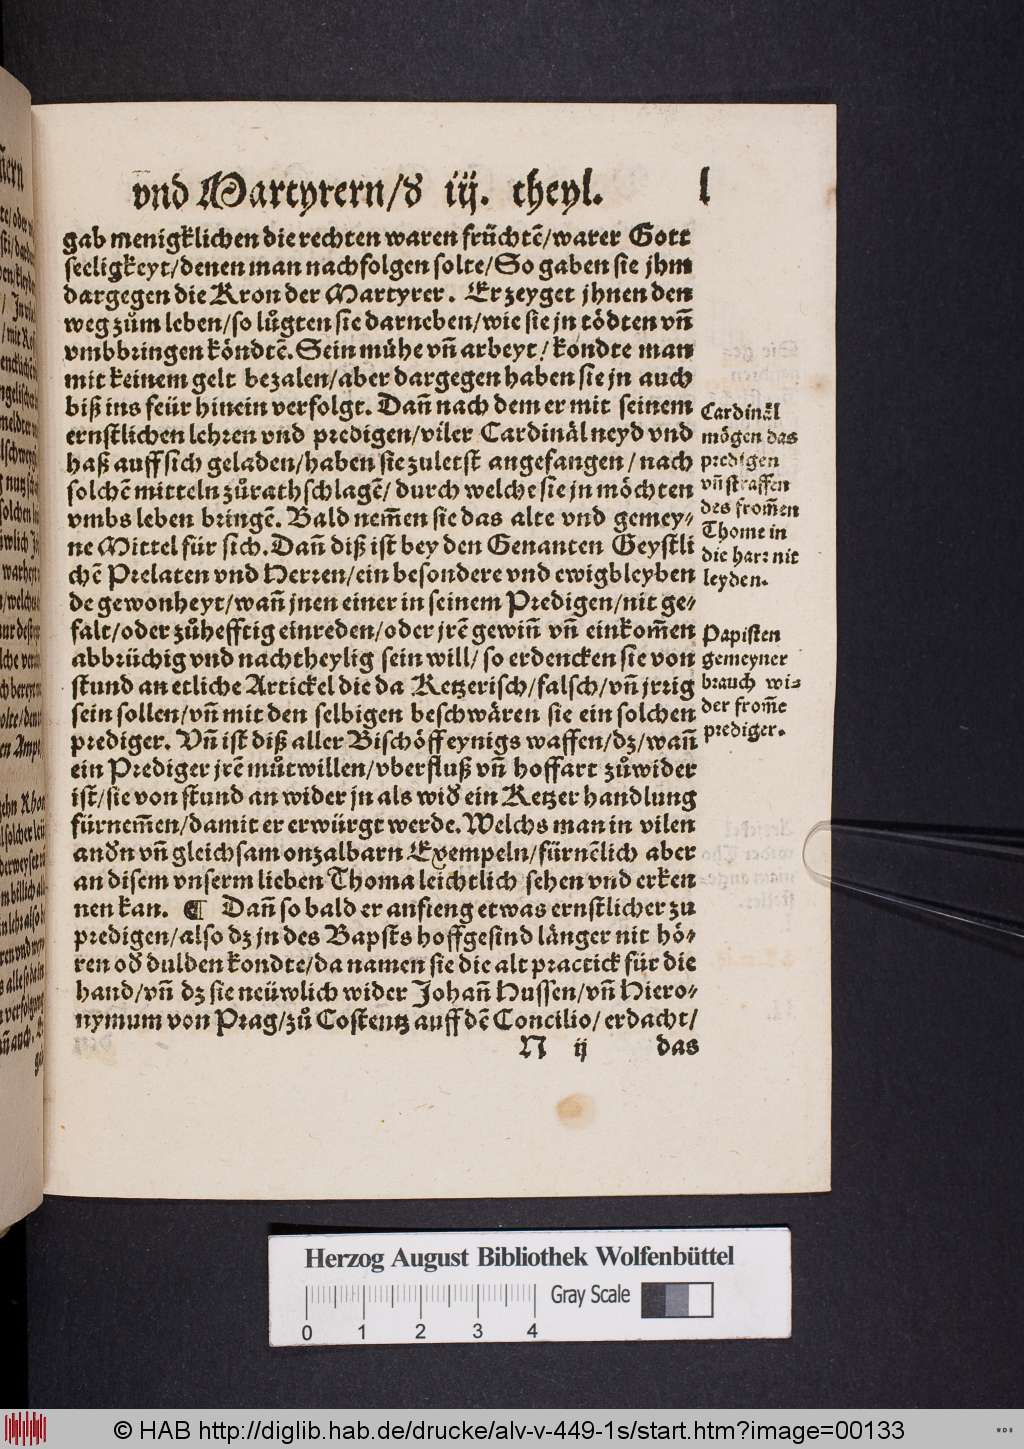 vnd Martyrern/ď iij. theyl. l
gab menigklichen die rechten waren früchtẽ/warer Gott
seeligkeyt/denen man nachfolgen solte/So gaben sie jhm
dargegen die Kron der Martyrer. Erzeyget jhnen den
weg zům leben/so lůgten sie darneben/wie sie jn tödten vñ
vmbbringen köndtẽ. Sein mühe vñ arbeyt/ kondte man
mit keinem gelt bezalen/aber dargegen haben sie jn auch
biß ins feür hinein verfolgt. Dañ nach dem er mit seinem
ernstlichen lehren vnd predigen/viler Cardinäl neyd vnd
haß auff sich geladen/haben sie zuletst angefangen/ nach
solchẽ mitteln zůrathschlagẽ/ durch welche sie jn möchten
vmbs leben bringẽ. Bald nem̃en sie das alte vnd gemey⸗
ne Mittel für sich. Dañ diß ist bey den Genanten Geystli
chẽ Prelaten vnd Herren/ein besondere vnd ewigbleyben
de gewonheyt/wañ jnen einer in seinem Predigen/nit ge⸗
falt/oder zůhefftig einreden/oder jrẽ gewiñ vñ einkom̃en
abbrüchig vnd nachtheylig sein will/ so erdencken sie von
stund an etliche Artickel die da Ketzerisch/falsch/vñ jrrig
sein sollen/vñ mit den selbigen beschwären sie ein solchen
prediger. Vñ ist diß aller Bischöff eynigs waffen/dz/wañ
ein Prediger jrẽ můtwillen/vberfluß vñ hoffart zůwider
ist/sie von stund an wider jn als wiď ein Ketzer handlung
fürnem̃en/damit er erwürgt werde. Welchs man in vilen
anďn vñ gleichsam onzalbarn Exempeln/fürnẽlich aber
an disem vnserm lieben Thoma leichtlich sehen vnd erken
nen kan. ¶ Dañ so bald er anfieng etwas ernstlicher zu
predigen/also dz jn des Bapsts hoffgesind länger nit hö⸗
ren oď dulden kondte/da namen sie die alt practick für die
hand/vñ dz sie neüwlich wider Johañ Hussen/vñ Hiero⸗
nymum von Prag/zů Costentz auff dẽ Concilio/ erdacht/
N ij das
Cardinäl
mögen das
predigen
vñ straffen
des from̃en
Thome in
die harr nit
leyden.
Papisten
gemeyner
brauch wi⸗
der from̃e
prediger.
Herzog August Bibliothek Wolfenbüttel
Gray Scale
0 1 2 3 4
© HAB http://diglib.hab.de/drucke/alv-v-449-1s/start.htm?image=00133